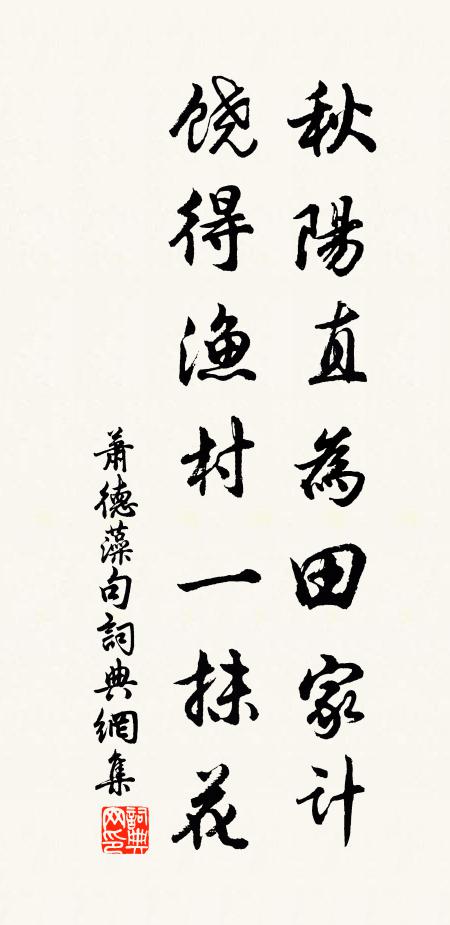 秋陽直為田家計
饶得漁村一抹花
蕭德藻句詞典網集
詞典网印